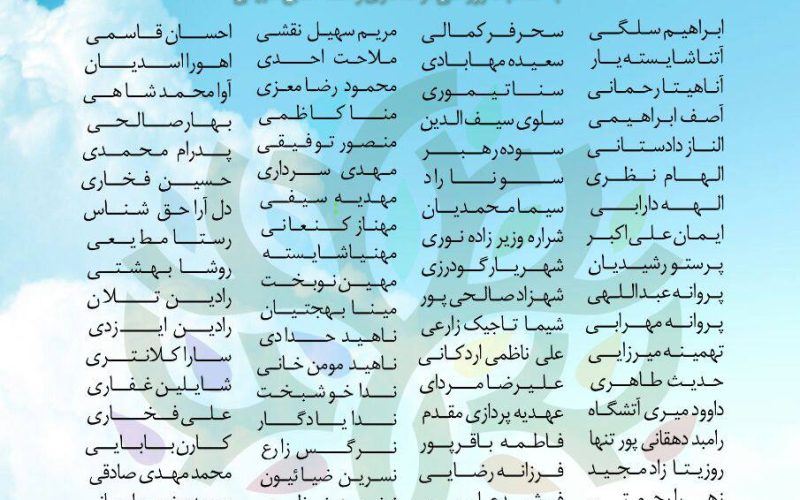 ابراهیم سلگی
آتنا شایسته یار
آناهیتا رحمانی
آصف ابراهیمی
الناز دادستانی
الهام نظری
الهه دارابی
ایمان علی اکبر
پرستو رشیدیان
پروانه عبداللهی
پروانه مهرابی
تهمینه میرزایی
حدیث طاهری
داوود میری آتشگاه
رامبد دهقانی پور تنها
روزیتا زاد مجید
سحرفر کمالی
سعیده مهابادی
سنا تیموری
سلوی سیف الدین
سوده رهبر
سونا راد
سیما محمدیان
شراره وزیر زاده نوری
شهریار گودرزی
شهرزاد صالحی پور
شیما تاجیک زارعی
علی ناظمی اردکانی
علیرضا مردای
عهدیه پردازی مقدم
فاطمه باقرپور
فرزانه رضایی
مریم سهیل نقشی
ملاحت احدی
محمود رضا معزی
منا کاظمی
منصور توفیقی
مهدی سرداری
مهدیه سیفی
مهناز کنعانی
مهنیا شایسته
مهین نوبخت
مینا بهجتیان
ناهید حدادی
ناهید مومن خانی
ندا خوشبخت
ندا یادگار
نرگس زارع
نسرین ضیائیون
احسان قاسمی
اهورا اسدیان
آوا محمد شاهی
بهار صالحی
پدرام محمدی
حسین فخاری
دل آرا حق شناس
رستا مطیعی
روشا بهشتی
رادین تلان
رادین ایزدی
سارا کلانتری
شایلین غفاری
علی فخاری
کارن بابایی
محمد مهدی صادقی